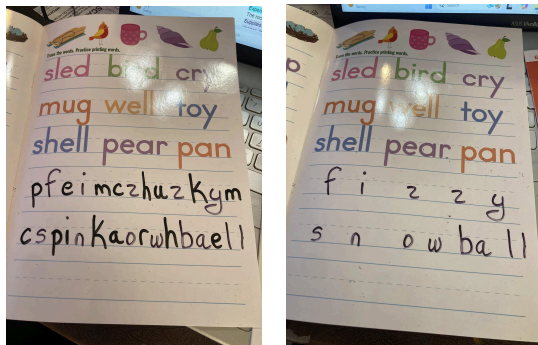 Trace the words. Practice printing words.
sled bird cry
mug well toy
shell pear pan
pfeimczhuzkym
cspinkaorwhbaell
Trace the words. Practice printing words.
sled bird cry
mug well toy
shell pear pan
f i z z y
s n o w ba ll